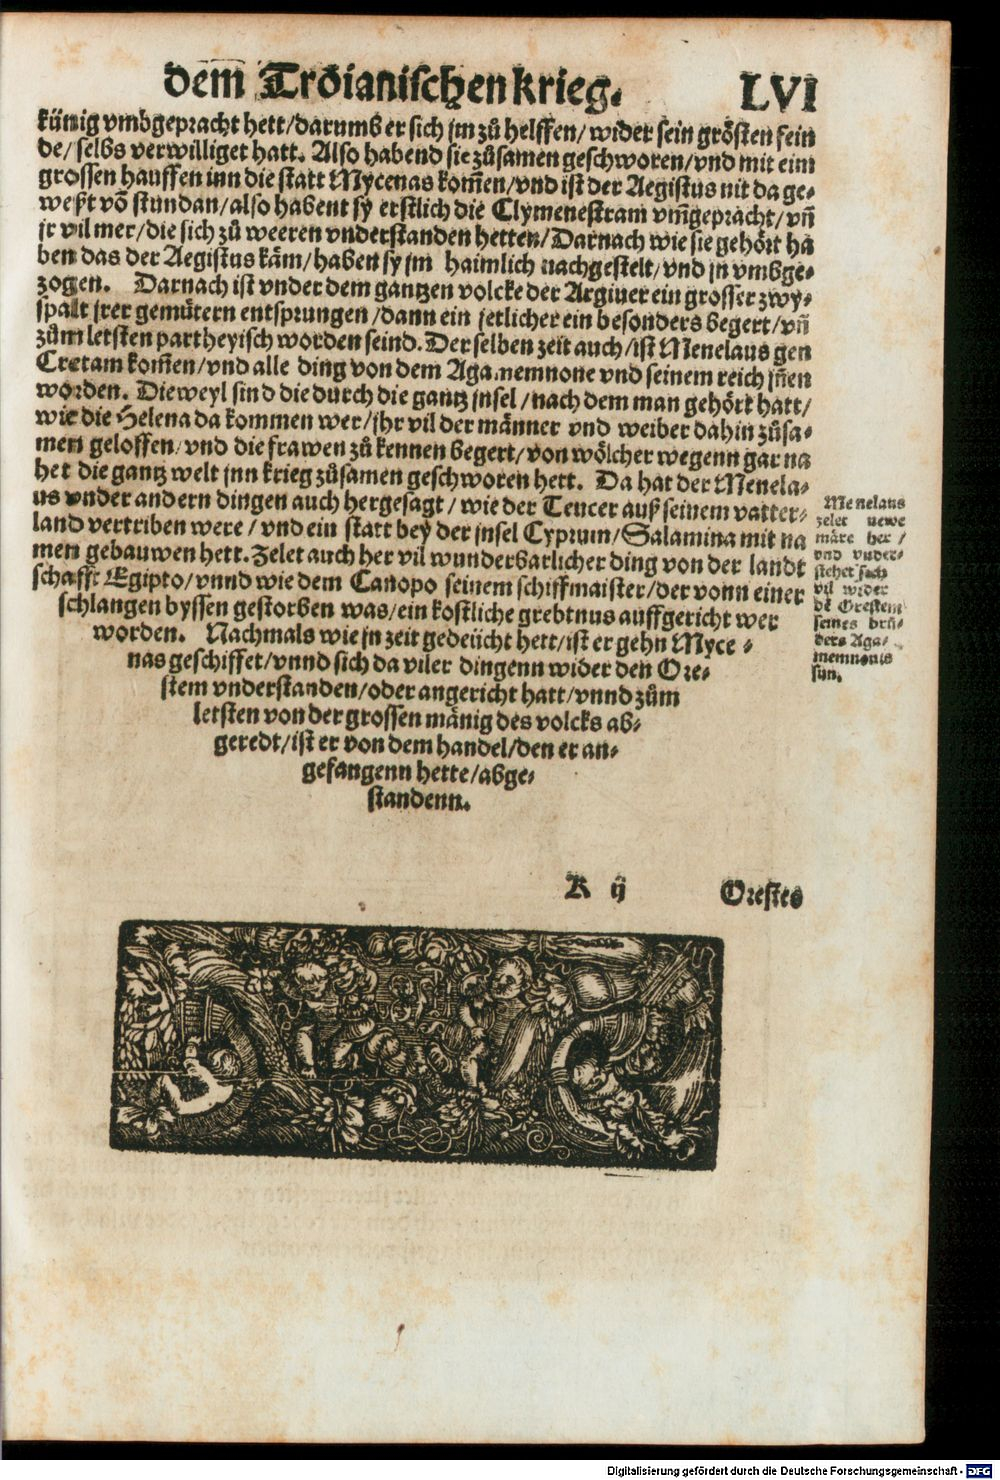 dem Troianischen krieg. LVI
künig vmbgepracht hett/darumb er sich jm zů helffen/wider sein grösten fein
de/selbs verwilliget hatt. Also habend sie zůsamen geschworen/vnd mit eim
grossen hauffen inn die statt Mycenas kom̃en/vnd ist der Aegistus nit da ge⸗
weßt võ stundan/also habent sy erstlich die Clymenestram vm̃gepracht/vñ
jr vil mer/die sich zů weeren vnderstanden hetten/Darnach wie sie gehört ha
ben das der Aegistus käm/haben sy jm haimlich nachgestelt/vnd jn vmbge⸗
zogen. Darnach ist vnder dem gantzen volcke der Argiuer ein grosser zwy⸗
spalt jrer gemütern entsprungen/dann ein jetlicher ein besonders begert/vñ
zům letsten partheyisch worden seind. Der selben zeit auch/ist Menelaus gen
Cretam kom̃en/vnd alle ding von dem Agamemnone vnd seinem reich jñen
worden. Dieweyl sind die durch die gantz jnsel/nach dem man gehört hatt/
wie die Helena da kommen wer/jhr vil der männer vnd weiber dahin zůsa⸗
men geloffen/vnd die frawen zů kennen begert/von wölcher wegenn gar na
het die gantz welt jnn krieg zůsamen geschworen hett. Da hat der Menela⸗
us vnder andern dingen auch hergesagt/wie der Teucer auß seinem vatter⸗
land vertriben were/vnd ein statt bey der jnsel Cyprum/Salamina mit na
men gebauwen hett. Zelet auch her vil wunderbarlicher ding von der landt
schafft Egipto/vnnd wie dem Canopo seinem schiffmaister/der vonn einer
schlangen byssen gestorben was/ein kostliche grebtnus auffgericht wer
worden. Nachmals wie jn zeit gedeücht hett/ist er gehn Myce⸗
nas geschiffet/vnnd sich da viler dingenn wider den Ore⸗
stem vnderstanden/oder angericht hatt/vnnd zům
letsten von der grossen mänig des volcks ab⸗
geredt/ist er von dem handel/den er an⸗
gefangenn hette/abge⸗
standenn.
Menelaus
zelet newe
märe her/
vnd vnder⸗
stehet sich
vil wider
dẽ Orestem
seines brů⸗
ders Aga⸗
memnonis
sun.
K ij Orestes
Digitalisierung gefördert durch die Deutsche Forschungsgemeinschaft - DFG